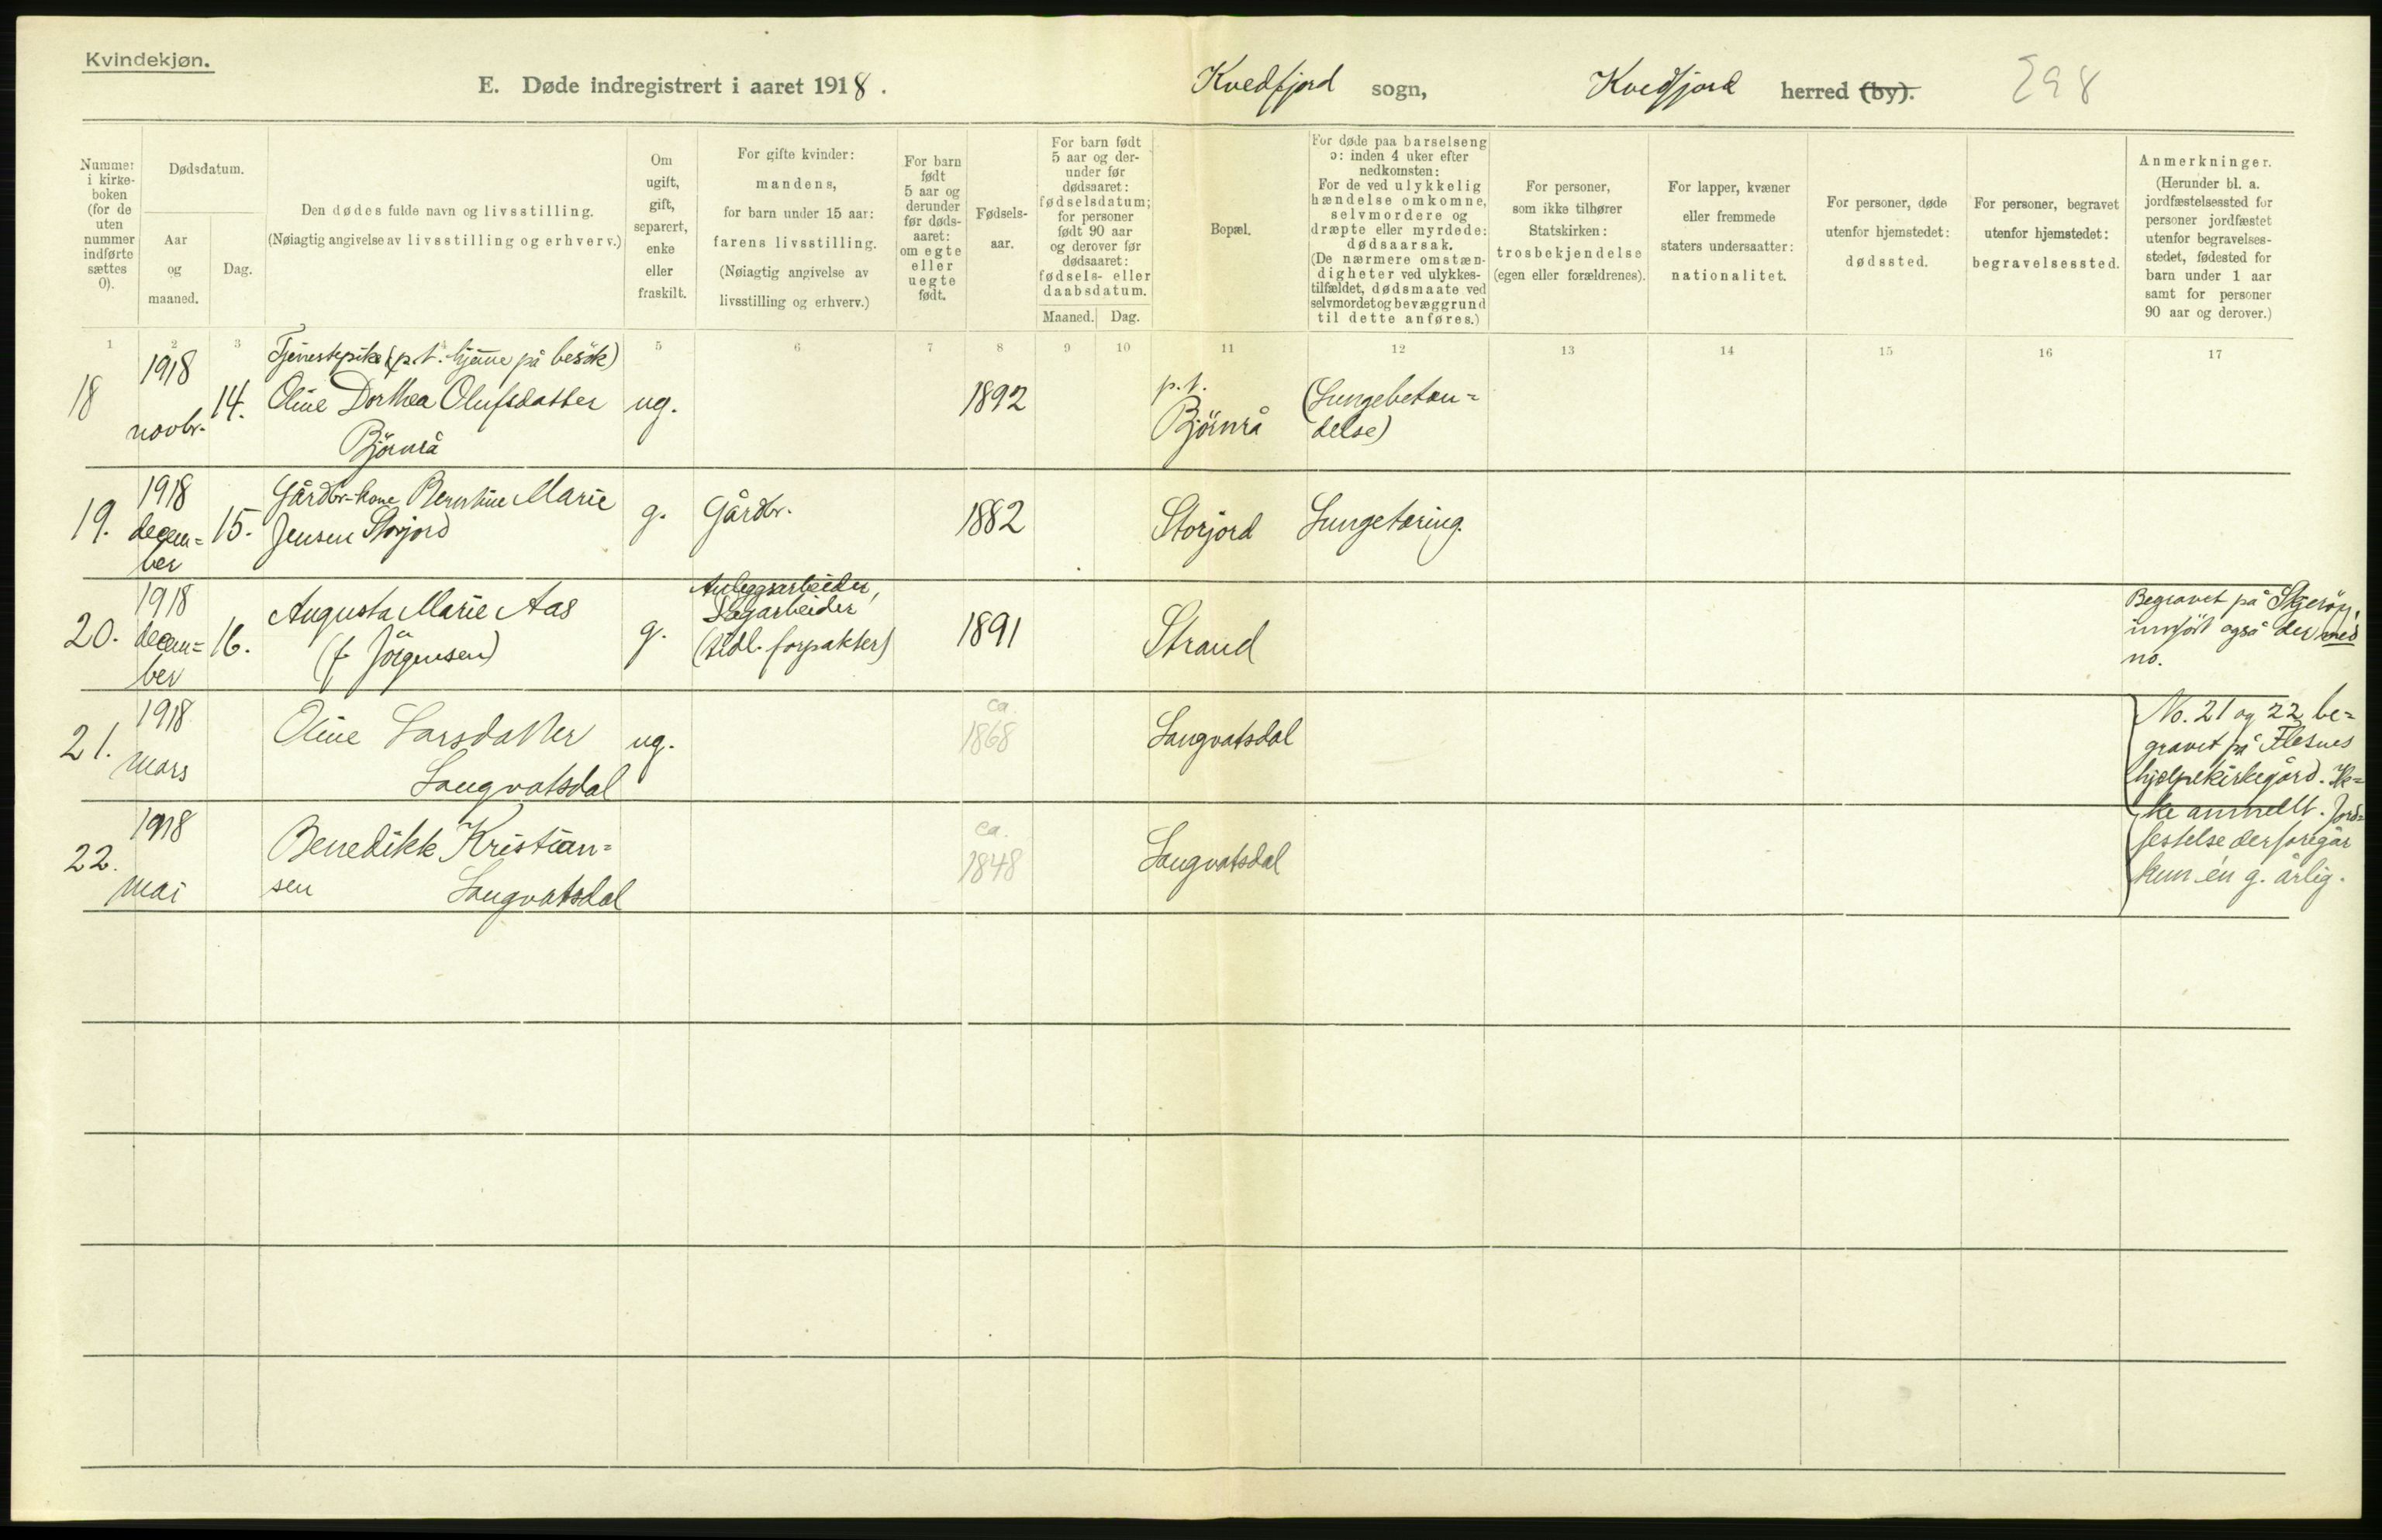 Kvindekjøn.
E. Døde indregistrert i aaret 1918. Kvedfjord sogn, Kvedfjord herred (by). 298
Nummer i kirke-boken (for de uten nummer indførte sættes 0).
Dødsdatum.
Aar og maaned.
Dag.
Den dødes fulde navn og livsstilling.
(Nøiagtig angivelse av livsstilling og erhverv.)
Om ugift, gift, separert, enke eller fraskilt.
For gifte kvinder: mandens, for barn under 15 aar: farens livsstilling. (Nøiagtig angivelse av livsstilling og erhverv.)
For barn født 5 aar og derunder før døds-aaret: om egte eller uegte født.
Fødsels-aar.
For barn født 5 aar og der-under før dødsaaret: fødselsdatum; for personer født 90 aar og derover før dødsaaret: fødsels- eller daabsdatum.
Maaned. Dag.
Bopæl.
For døde paa barselseng ɔ: inden 4 uker efter nedkomsten: For de ved ulykkelig hændelse omkomne, selvmordere og dræpte eller myrdede: dødsaarsak. (De nærmere omstæn-digheter ved ulykkes-tilfældet, dødsmaate ved selvmordet og bevæggrund til dette anføres.)
For personer, som ikke tilhører Statskirken: trosbekjendelse (egen eller forældrenes).
For lapper, kvæner eller fremmede staters undersaatter: nationalitet.
For personer, døde utenfor hjemstedet: dødssted.
For personer, begravet utenfor hjemstedet: begravelsessted.
Anmerkninger. (Herunder bl. a. jordfæstelsessted for personer jordfæstet utenfor begravelses-stedet, fødested for barn under 1 aar samt for personer 90 aar og derover.)
1 2 3 4 5 6 7 8 9 10 11 12 13 14 15 16 17
18 1918 novbr. 14. Tjenestepike (p.t. hjemme på besök)
Oline Dorthea Olufsdatter
Björnrå
ug. 1892 p.t.
Björnrå
(Lungebetæn=
delse)
19. 1918 decem=
ber 15. Gårdbr-kone Bernthine Marie
Jensen Storjord
g. Gårdbr. 1882 Storjord Lungetæring.
20. 1918 decem=
ber 16. Augusta Marie Aas
(f Jörgensen)
g. Anleggsarbeider,
Slagarbeider
(tidl. forpakter)
1891 Strand
Begravet på
innfört også der med
no.
21. 1918 mars Oline Larsdatter
Langvatsdal
ug. ca.
1868 Langvatsdal
No. 21 og 22 be=
gravet på Flesnes
hjelpekirkegård. Ik=
ke anmeldt. Jord=
festelse der foregår
kun én g. årlig.
22. 1918 mai Benedikk Kristian=
sen Langvatsdal
ca.
1848 Langvatsdal